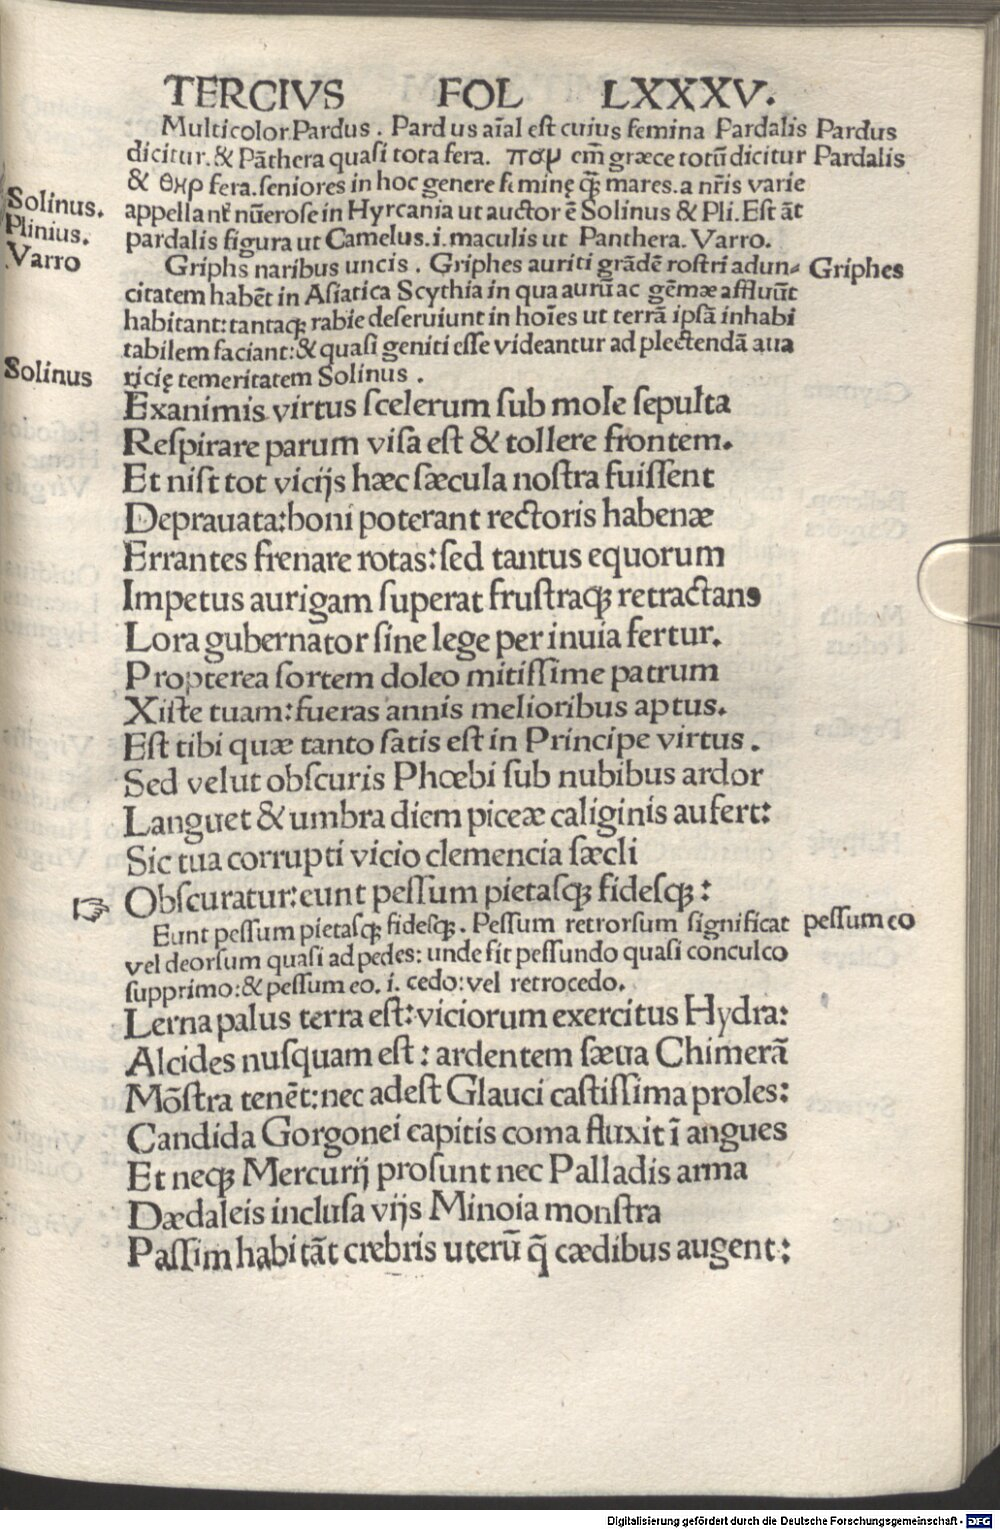 TERCIVS FOL LXXXV.
Multicolor Pardus . Pardus aĩal eſt cuius femina Pardalis Pardus
dicitur. & Pãthera quaſi tota fera. παμ em̃ græce totũ dicitur Pardalis
& θηρ fera. ſeniores in hoc genere feminę q̃ꝫ mares. a nr̃is varie
Solinus. appellant᷑ nũeroſe in Hyrcania ut auctor ẽ Solinus & Pli. Eſt ãt
Plinius. pardalis figura ut Camelus. i. maculis ut Panthera. Varro.
Varro Griphs naribus uncis . Griphes auriti grãdẽ roſtri adun⸗ Griphes
citatem habẽt in Aſiatica Scythia in qua aurũ ac gẽmæ affluũt
habitant: tantaqꝫ rabie deſeruiunt in hoĩes ut terrã ipſã inhabi
tabilem faciant: & quaſi geniti eſſe videantur ad plectendã aua
Solinus ricię temeritatem Solinus .
Exanimis virtus ſcelerum ſub mole ſepulta
Reſpirare parum viſa eſt & tollere frontem.
Et niſi tot vicijs hæc ſæcula noſtra fuiſſent
Deprauata: boni poterant rectoris habenæ
Errantes frenare rotas: ſed tantus equorum
Impetus aurigam ſuperat fruſtraqꝫ retractans
Lora gubernator ſine lege per inuia fertur.
Propterea ſortem doleo mitiſſime patrum
Xiſte tuam: fueras annis melioribus aptus.
Eſt tibi quæ tanto ſatis eſt in Principe virtus .
Sed velut obſcuris Phœbi ſub nubibus ardor
Languet & umbra diem piceæ caliginis aufert:
Sic tua corrupti vicio clemencia ſæcli
☞ Obſcuratur: eunt peſſum pietaſqꝫ fideſqꝫ :
Eunt peſſum pietaſqꝫ fideſqꝫ . Peſſum retrorſum ſignificat peſſum eo
vel deorſum quaſi ad pedes: unde fit peſſundo quaſi conculco
ſupprimo: & peſſum eo. i. cedo: vel retrocedo.
Lerna palus terra eſt: viciorum exercitus Hydra:
Alcides nuſquam eſt : ardentem ſæua Chimerã
Mõſtra tenẽt: nec adeſt Glauci caſtiſſima proles:
Candida Gorgonei capitis coma fluxit ĩ angues
Et neqꝫ Mercurij proſunt nec Palladis arma
Dædaleis incluſa vijs Minoia monſtra
Paſſim habitãt crebris uterũ q̃ cædibus augent:
Digitalisierung gefördert durch die Deutsche Forschungsgemeinschaft - DFG